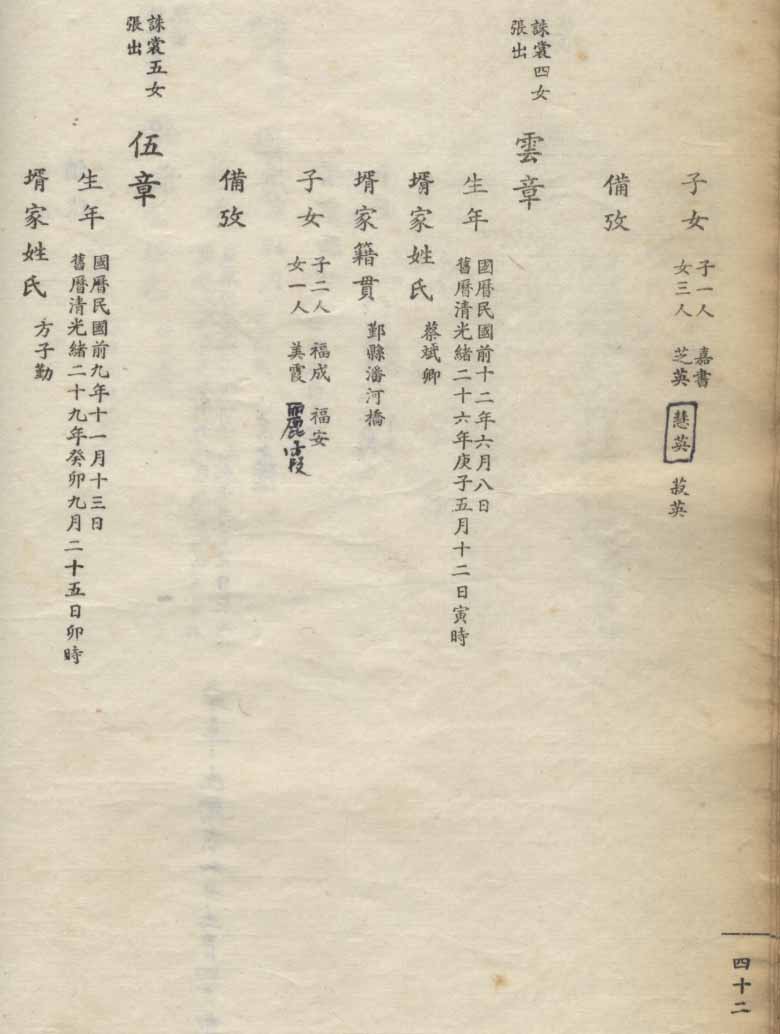 子女
子一人 嘉書
女三人 芝英 慧英 菽英
備攷
誄裳四女
張出
雲章
生年
國曆民國前十二年六月八日
舊曆清光緒二十六年庚子五月十二日寅時
壻家姓氏 蔡斌卿
壻家籍貫 鄞縣潘河橋
子女
子二人 福成 福安
女一人 美霞 麗霞
備攷
誄裳五女
張出
伍章
生年
國曆民國前九年十一月十三日
舊曆清光緒二十九年癸卯九月二十五日卯時
壻家姓氏 方子勤
四十二